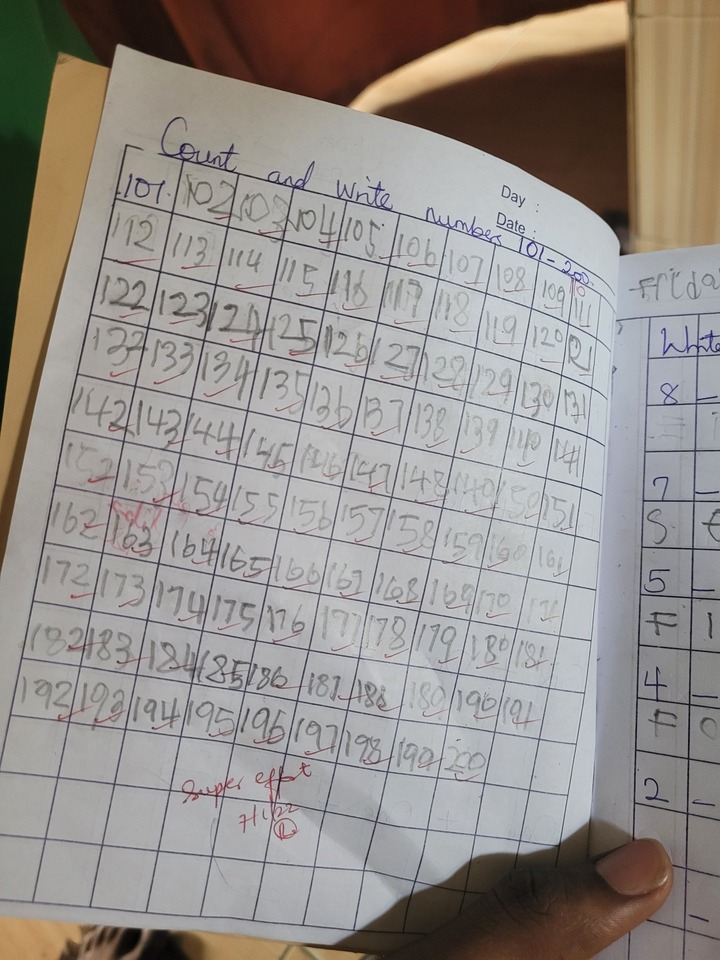 Day :
Date :
Count and write numbers 101-200.
101. 102 103 104 105 106 107 108 109 110 111
112 113 114 115 116 117 118 119 120 121
122 123 124 125 126 127 128 129 130 131
132 133 134 135 136 137 138 139 140 141
142 143 144 145 146 147 148 149 150 151
152 153 154 155 156 157 158 159 160 161
162 163 164 165 166 167 168 169 170 171
172 173 174 175 176 177 178 179 180 181
182 183 184 185 186 187 188 189 190 191
192 193 194 195 196 197 198 199 200
Super effort
Frida
Write
8 _
7 _
S
5 _
F I
4 _
F O
2 _